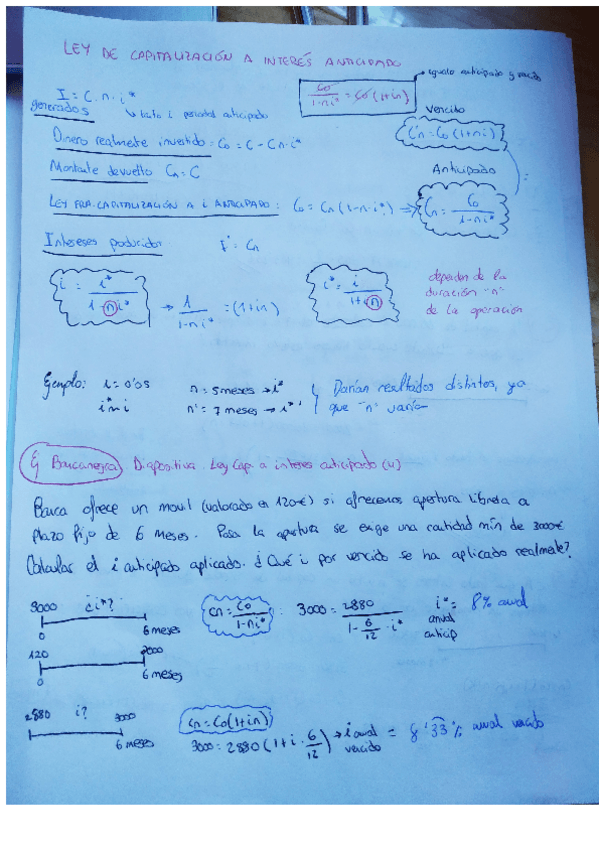 LEY DE CAPITALIZACIÓN A INTERÉS ANTICIPADO
I = C · n · i*
generados
↳ tanto i periodal anticipado
C₀/(1-ni*) = C₀(1+in)
→ igualo anticipado y vencido
Vencido
Cn = C₀(1+ni)
Dinero realmente invertido: C₀ = C - Cni*
Montante devuelto Cn = C
Anticipado
LEY FRA. CAPITALIZACIÓN A i ANTICIPADO: C₀ = Cn(1-n·i*) ⇒ Cn = C₀/(1-ni*)
Intereses producidos
i = i*/(1-ni*) → 1/(1-ni*) = (1+in)
i* = i/(1+in)
dependen de la
duración "n"
de la operación
Ejemplo: i = 0'05 n = 5 meses → i*
n' = 7 meses → i*'
Darían resultados distintos, ya
que "n" varía
Ej Barcanegra) Diapositiva. Ley Cap. a interes anticipado (4)
Banca ofrece un movil (valorado en 120€) si ofrecemos apertura libreta a
plazo fijo de 6 meses. Para la apertura se exige una cantidad mín de 3000€
Calcular el i anticipado aplicado. ¿Qué i por vencido se ha aplicado realmente?
3000 ¿i*?
0 6 meses
Cn = C₀/(1-ni*) : 3000 = 2880/(1 - 6/12 · i*)
i* = 8% anual
anual
anticip
120 3000
0 6 meses
2880 i? 3000
6 meses
Cn = C₀(1+in)
3000 = 2880(1 + i · 6/12) → i anual = 8'33% anual vencido
vencido